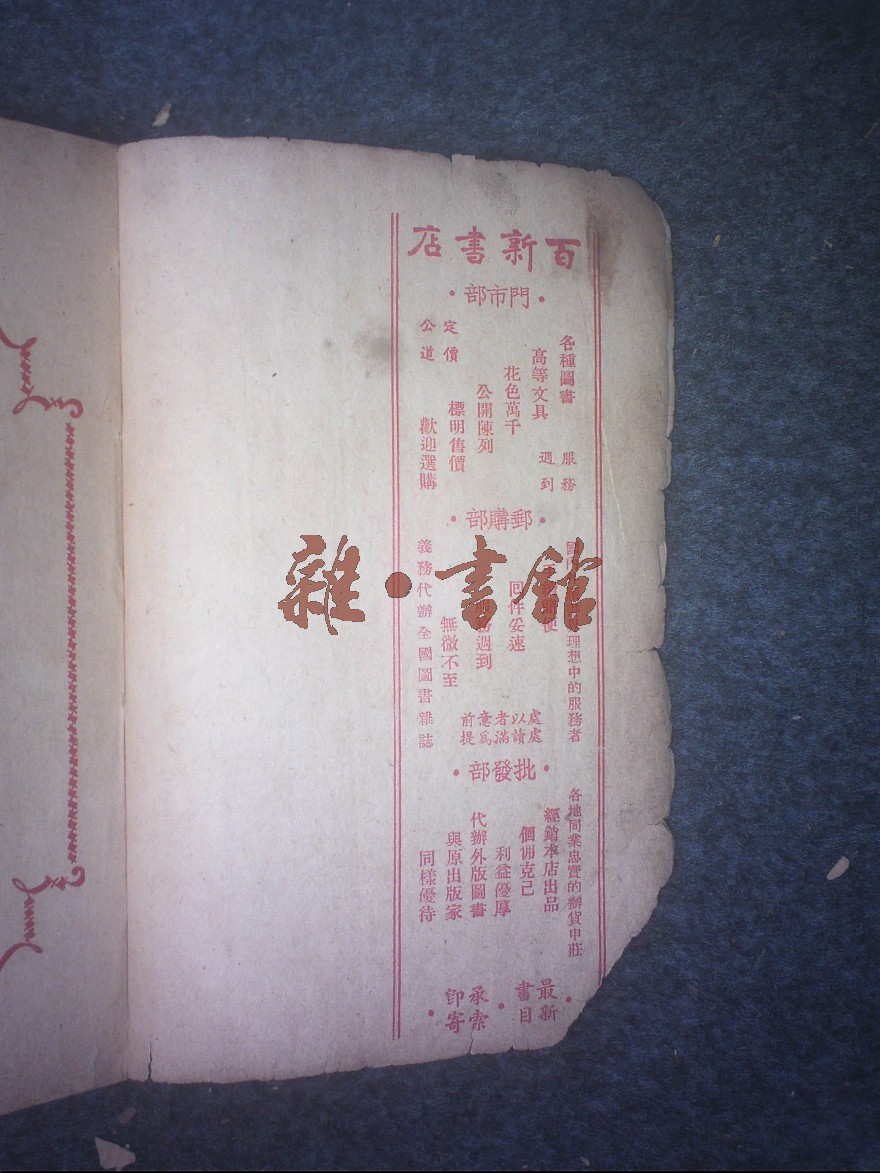 百新書店
·門市部·
各種圖書
高等文具
花色萬千
公開陳列
標明售價
歡迎選購
服務
週到
定價
公道
·郵購部·
理想中的服務者
便
回件妥速
服務週到
無微不至
義務代辦全國圖書雜誌
處處
以讀
者滿
意為
前提
·批發部·
各地同業忠實的辦貨申莊
經銷本店出品
佣克己
利益優厚
代辦外版圖書
與原出版家
同樣優待
·最新
書目·
承索
即寄·
雜·書館